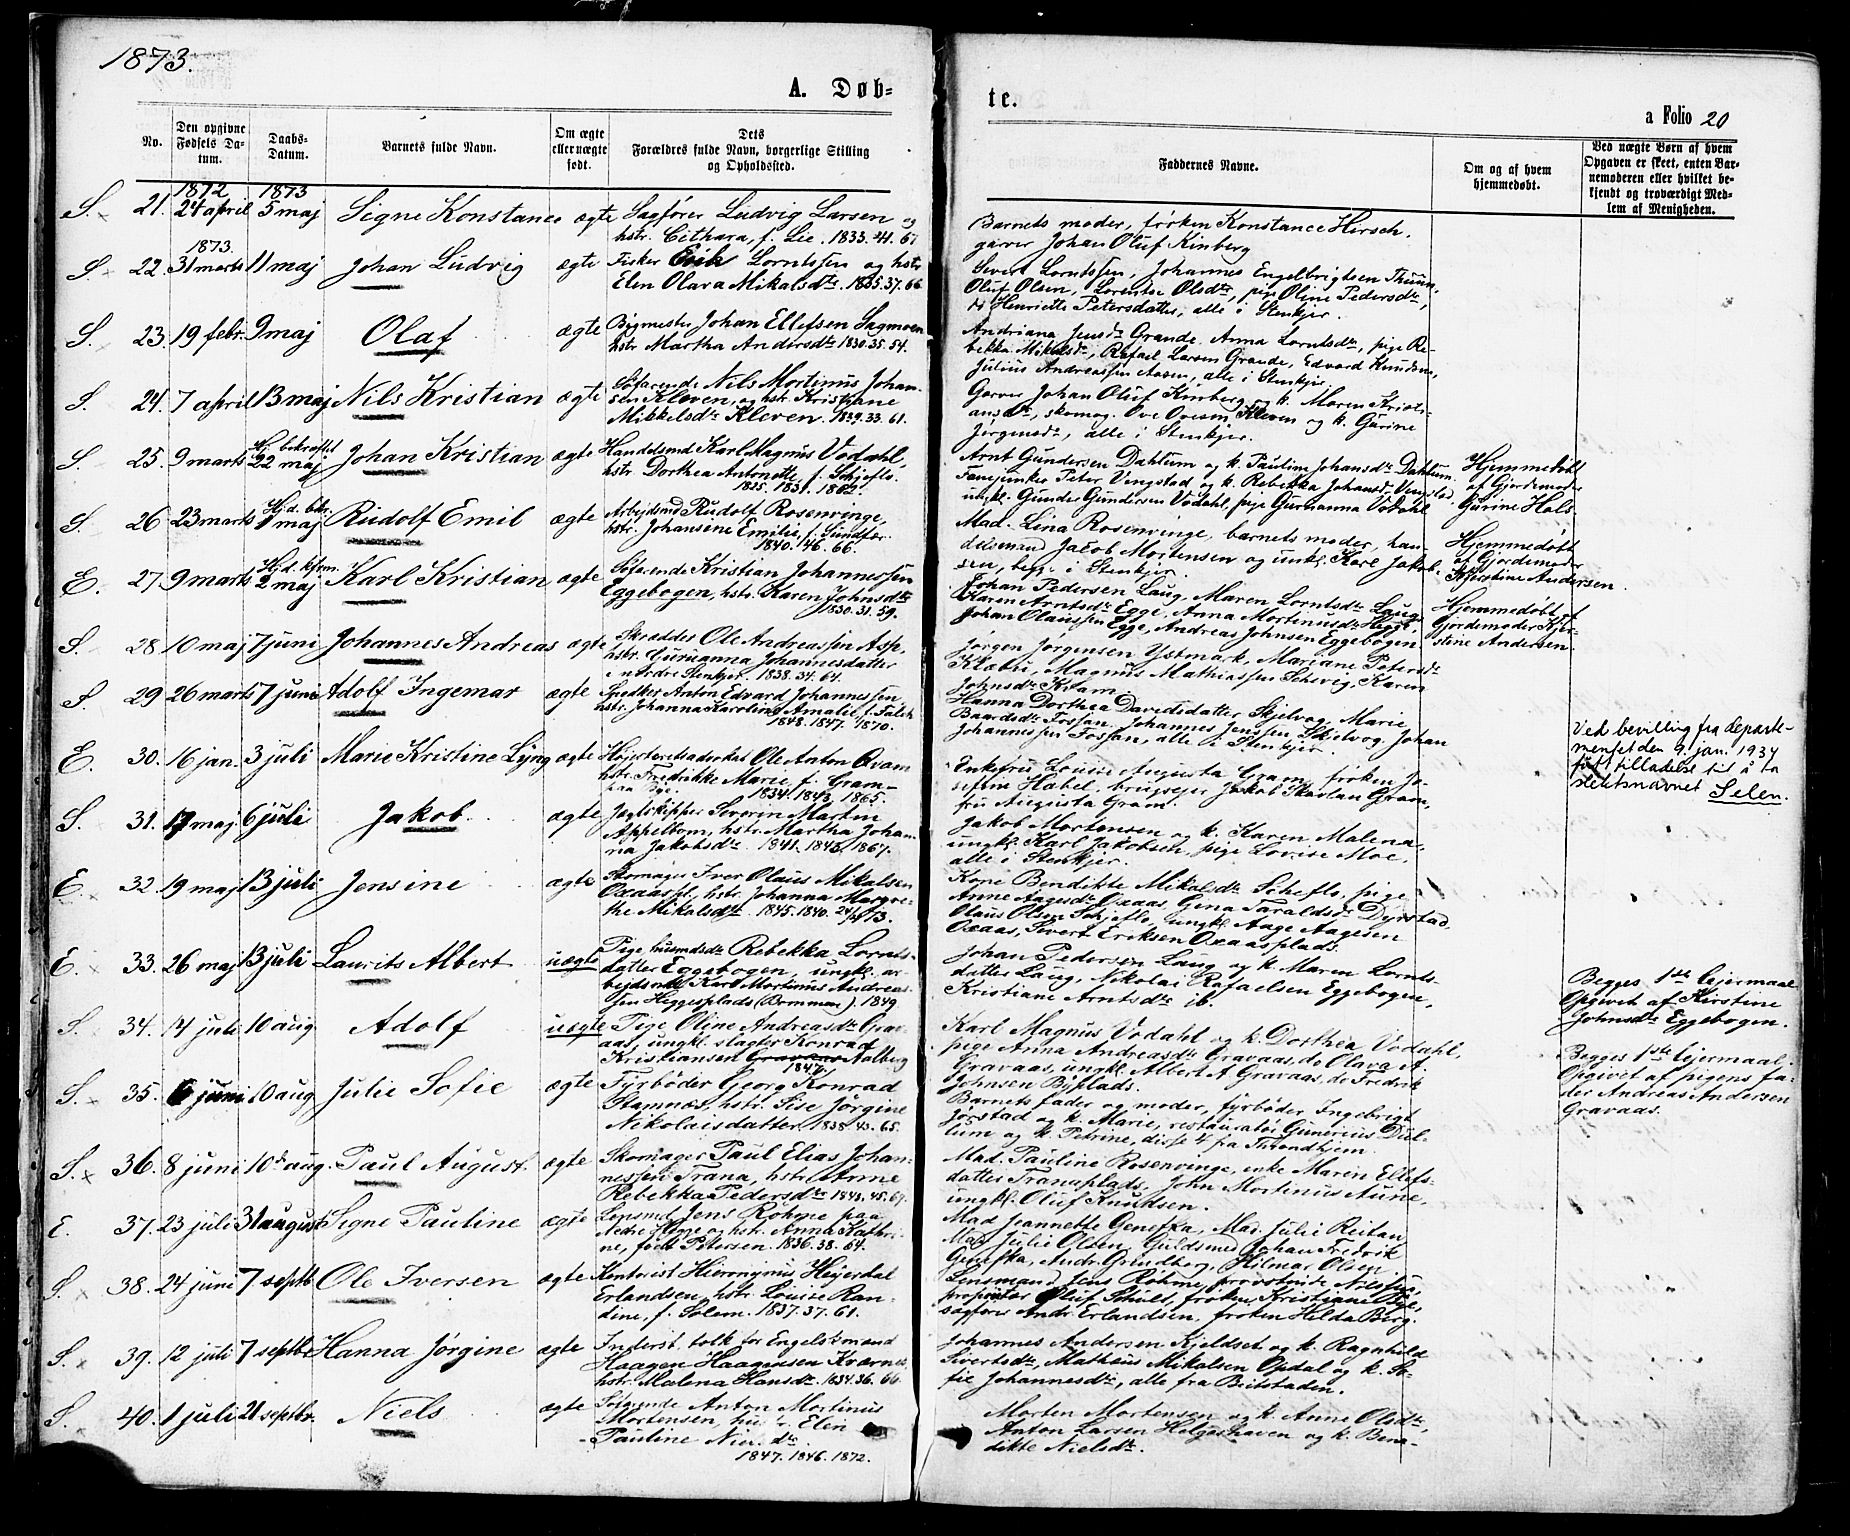 1873.
A. Døb-
te.
a Folio 20
No.
Den opgivne
Fødsels Da-
tum.
Daabs-
Datum.
Barnets fulde Navn.
Om ægte
eller uægte
født.
Dets
Forældres fulde Navn, borgerlige Stilling
og Opholdssted.
Faddernes Navne.
Om og af hvem
hjemmedøbt.
Ved uægte Børn af hvem
Opgaven er skeet, enten Bar-
nemoderen eller hvilket be-
kjendt og troværdigt Med-
lem af Menigheden.
1872 1873
S. 21. 24 april 5 maj Signe Konstance ægte Sagfører Ludvig Larsen og
hstr. Cithara, f. Lie. 1833. 41. 67
Barnets moder, frøken Konstance Hirsch,
garver Johan Oluf Kinberg
1873.
S 22. 31 marts 11 maj Johan Ludvig ægte Fisker Erik Lorntssen og hstr
Elen Olava Mikalsdtr. 1835. 37. 66
Sivert Lorntssen, Johannes Engelbrigtsen Thunn,
Oluf Olsen, Lorentse Olsdtr, pige Oline Pedersdtr,
do Henriette Petersdatter, alle i Stenkjer.
S. 23. 19 febr. 9 maj Olaf ægte Bygmester Johan Ellefsen Sagmoen
hstr Martha Andersdtr 1830. 35. 54.
Andriana Jensdr Grande, Anna Lorntsdtr, pige Re-
bekka Mikalsdr, Rafael Larsen Grande, Edvard Knudsen,
Julius Andreassen Aasen, alle i Stenkjer.
S. 24. 7 april 13 maj Nils Kristian ægte Søfarende Nils Mortinus Johan-
sen Kleven, og hstr Kristiane
Mikkelsdtr Kleven. 1839. 33. 61.
Garver Johan Oluf Kinberg og k. Maren Kristi-
ansdtr, skomag. Ove Ovesen Kleven og k. Gurine
Jørgensdtr, alle i Stenkjer.
S. 25. 9 marts Hj. bekræftet 22 maj Johan Kristian ægte Handelsmd Karl Magnus Vodahl,
hstr. Dorthea Antonette f. Schjeflo.
1825. 1831. 1862.
Arnt Gundersen Dahlum og k. Pauline Johansdtr Dahlum,
Fanejunker Peter Vengstad og k. Rebekka Johansdr Vengstad,
ungk. Gunder Gundersen Vodahl, pige Gurhanna Vodahl
Hjemmedøbt
af Gjordemoder
Gurine Hals
S. 26 23 marts Hjd. bkr. 1 maj Rudolf Emil ægte Arbejdsmd Rudolf Rosenvinge,
hstr. Johansine Emilie, f. Sundfær.
1840. 46. 66.
Mad. Lina Rosenvinge, barnets moder, han-
delsmand Jacob Mortensen og unkl. Karl Jakob-
sen, begge i Stenkjer.
Hjemmedøbt
af Gjordemoder
Kjerstine Andersen.
E. 27. 9 marts 2 maj Karl Kristian ægte Søfarende Kristian Johannessen
Eggebogen, hstr. Karen Johnsdtr
1830. 31. 59.
Johan Pedersen Laug, Maren Lorntsdtr Laug,
Karen Arntsdtr Egge, Anna Mortenusdtr Hegge,
Johan Olaussen Egge, Andreas Johnsen Eggebogen
Hjemmedøbt af
Gjordemoder Kjer-
stine Andersen.
S. 28. 10 maj 7 juni Johannes Andreas ægte Skrædder Ole Andreassen Asp,
hstr. Guruanna Johannesdatter
i nordre Stenkjer. 1838. 34. 64.
Jørgen Jørgensen Ystmark, Mariane Petersdtr
Klæbu, Magnus Mathiassen Selvig, Karen
Johnsdtr Kvam.
S. 29 26 marts 7 juni Adolf Ingemar ægte Snedker Anton Edvard Johannessen
hstr. Johanna Karoline Amalie f. Falch
1848. 1847. 1870.
Hanna Dorthea Davidsdatter Skjelvog, Marie
Baardsdtr Fossan, Johannes Jenssen Skjelvog, Johan
Johannessen Fossan, alle i Stenkjer.
E. 30. 16 jan. 3 juli Marie Kristine Lyng ægte Højesteretsadvokat Ole Anton Qvam
hstr. Fredrikke Marie, f. Gram-
paa Bye. 1834. 1843. 1865.
Enkefru Louise Augusta Gram, frøken Jo-
sefine Habel, brugsejer Jakob Skavlan Gram,
fru Augusta Gram.
Ved bevilling fra departe-
mentet den 9. jan. 1934
fått tilladelse til å ta
slektsnavnet Selen.
S. 31. 17 maj 6 juli Jakob ægte Jagtskipper Severin Martin
Aphelbom, hstr. Martha Johan-
na Jakobsdtr. 1841. 1843. 1867.
Jakob Mortensen og k. Karen Malena,
ungkl. Karl Jakobsen, pige Lovise Moe,
alle i Stenkjer.
E. 32 19 maj 13 juli Jensine ægte Skomager Iver Olaus Mikalsen
Oxaaspl, hstr. Johanna Margre-
the Mikalsdtr. 1845. 1840.
Kone Bendikte Mikalsdtr Scheflo, pige
Anne Aagesdtr Oxaas, Gina Taraldsdr Dyrstad,
Olaus Olsen Schjeflo, ungkl. Aage Aagesen
Oxaas, Sivert Eriksen Oxaasplads.
E. 33. 26 maj 13 juli Laurits Albert uægte Pige, husmdsdtr Rebekka Lornts-
datter Eggebogen, ungkl. ar-
bejdsmd Karl Mortinus Andreas-
sen Heggesplads (Bomman). 1849.
Johan Pedersen Laug og k. Maren Lornts-
datter Laug, Nikolai Rafaelsen Eggebogen,
Kristiane Arntsdtr ib.
Begges 1ste lejermaal
Opgivet af Kirstine
Johnsdtr Eggebogen.
S. 34. 14 juli 10 aug. Adolf uægte Pige Oline Andreasdtr Grav-
aas, ungkl. slagter Konrad
Kristiansen Gravaas Aalberg
1847.
Karl Magnus Vodahl og k. Dorthea Vodahl,
pige Anna Andreasdtr Gravaas, do Olava A.
Gravaas, ungkl. Albert A. Gravaas, do Fredrik
Johnsen Byplads.
Begges 1ste lejermaal.
Opgivet af pigens fa-
der Andreas Andersen
Gravaas.
S. 35. 6 juni 10 aug Julie Sofie ægte Fyrbøder Georg Konrad
Stamnæs, hstr. Sise Jørgine
Nikolaisdatter 1838. 43. 65.
Barnets fader og moder, fyrbøder Ingebrigt
Jørstad og k. Marie, restauratør Gunerius Dul-
lum og k. Petrine, disse 4 fra Throndhjem.
S. 36. 8 juni 10de aug. Paul August ægte Skomager Paul Elias Johan-
nessen Trana, hstr. Anne
Rebekka Pedersdtr 1843. 45. 69.
Mad. Pauline Rosenvinge, enke Maren Ellefs-
datter Tranaplads, John Mortinus Aune,
ungkl. Oluf Knudsen.
E. 37. 23 juli 31 august Signe Pauline ægte Lensmd Jens Röhme paa
Nedre Hegge og hstr. Anna Kathri-
ne, født Petersen. 1836. 38. 64.
Mad Jeannette Geneska, Mad. Julie Reitan
Mad Julie Olsen, Guldsmed Johan Fredrik
Geneska, Andr. Grindberg, Hilmar Olsen.
S. 38. 24 juni 7 septb Ole Iversen ægte Kontorist Hieronymus Heyerdal
Erlandsen, hstr. Louise Ran-
dine, f. Solem. 1837. 37. 61.
Lensmand Jens Röhme, provstinde Nilssen,
proprietær Oluf Schult, frøken Kristiane Bye,
sagfører Andr. Erlandsen, frøken Hilda Berg.
S. 39. 12 juli 7 septbr Hanna Jørgine ægte Inderst, tolk for Engelskmænd
Haagen Haagensen Kværnes,
hstr. Malena Hansdtr. 1834. 36. 66.
Johannes Andersen Kjeldset og k. Ragnhild
Sivertsdtr, Matheus Mikalsen Opdal og k. So-
fie Johannesdtr, alle fra Beitstaden.
S. 40. 1 juli 21 septbr. Niels ægte Søfarende Anton Mortinus
Mortensen, hstr. Elen
Pauline Niel dtr
1847. 1846. 1872.
Morten Mortensen og k. Anne Olsdtr,
Anton Larsen Helgeshaven og k. Bena-
dikte Nielsdtr.